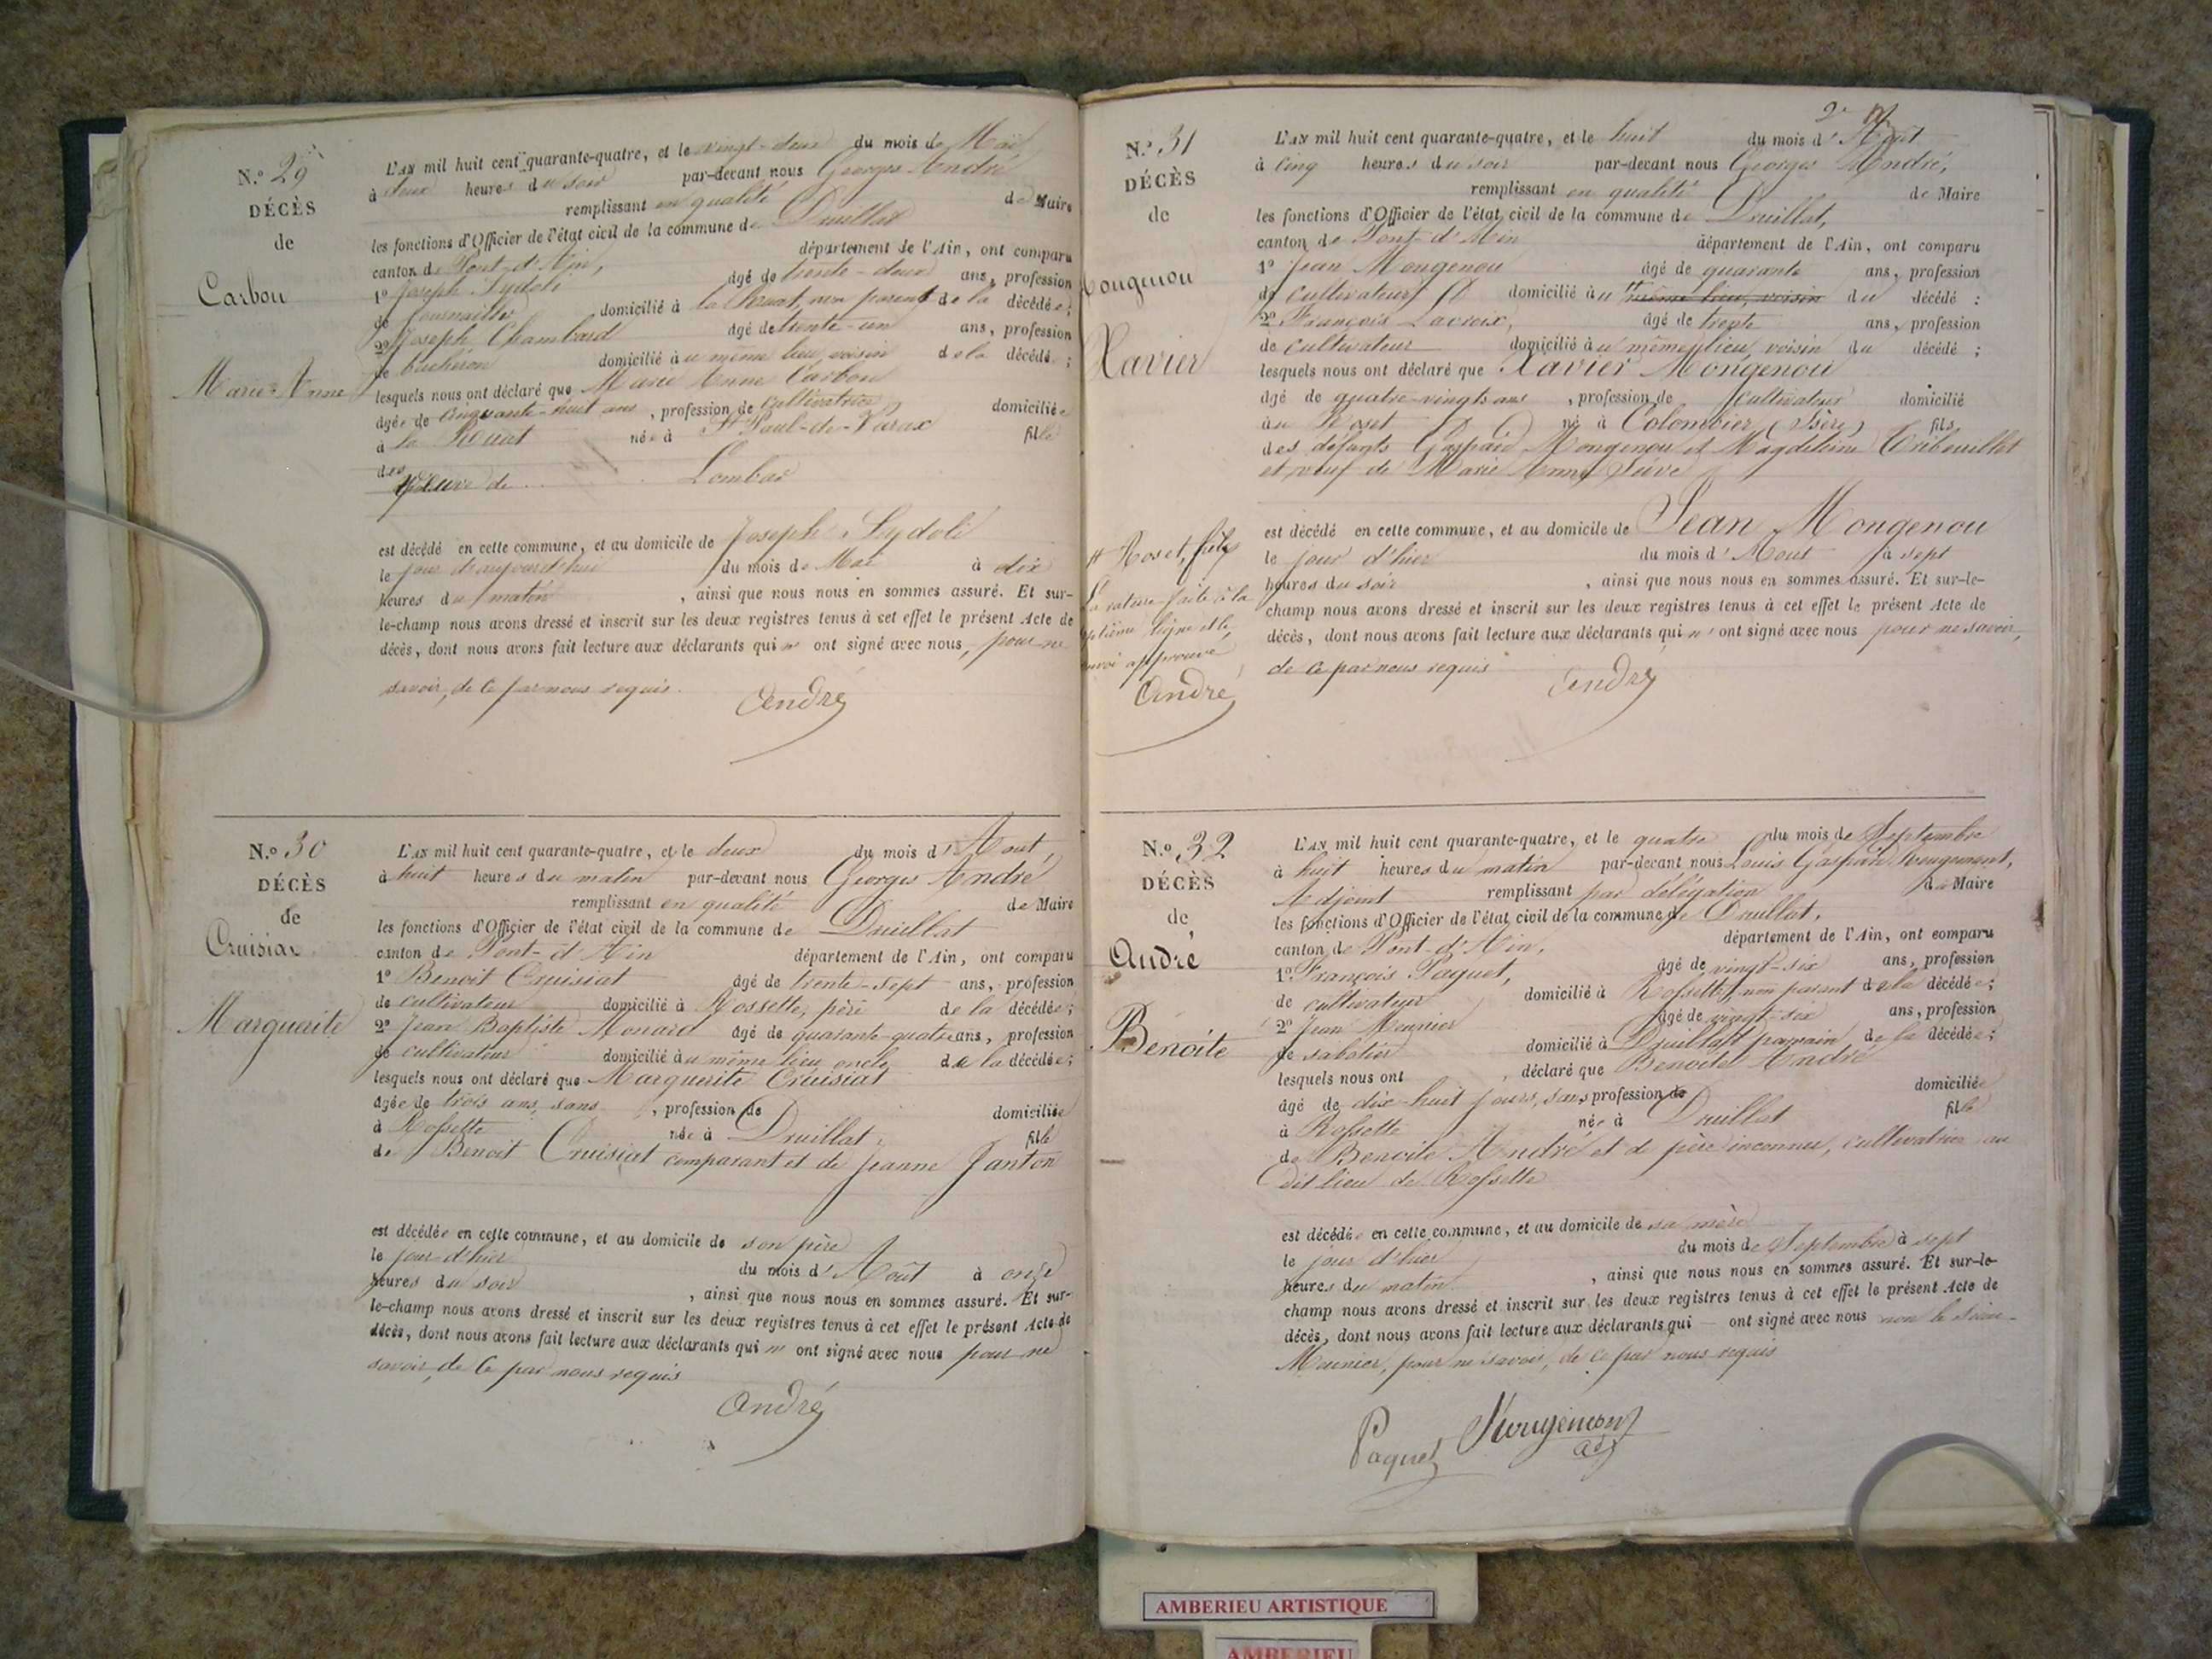 N.º 29
DÉCÈS
de
Carbon
Marie-Anne
L'AN mil huit cent quarante-quatre, et le vingt-deux du mois de Mai
à deux heures du soir par-devant nous Georges André
remplissant en qualité de Maire
les fonctions d'Officier de l'état civil de la commune de Druillat
canton de Pont-d'Ain, département de l'Ain, ont comparu
1º Joseph Sydoli âgé de trente-deux ans, profession
de journalier domicilié à la Rouat, non parent de la décédée;
2º Joseph Chambard âgé de trente-un ans, profession
de bucheron domicilié au même lieu, voisin de la décédée;
lesquels nous ont déclaré que Marie Anne Carbon
âgée de cinquante-huit ans, profession de cultivatrice, domiciliée
à la Rouat née à St Paul-de-Varax fille
des
Veuve de Lombar
est décédé en cette commune, et au domicile de Joseph Sydoli
le jour d'aujourd'hui du mois de Mai à dix
heures du matin, ainsi que nous nous en sommes assuré. Et sur-
le-champ nous avons dressé et inscrit sur les deux registres tenus à cet effet le présent Acte de
décès, dont nous avons fait lecture aux déclarants qui n' ont signé avec nous, pour ne
savoir, de ce par nous requis.
André
N.º 30
DÉCÈS
de
Cruisiat
Marguerite
L'AN mil huit cent quarante-quatre, et le deux du mois d'Aout,
à huit heures du matin par-devant nous Georges André
remplissant en qualité de Maire
les fonctions d'Officier de l'état civil de la commune de Druillat
canton de Pont-d'Ain département de l'Ain, ont comparu
1º Benoit Cruisiat âgé de trente-sept ans, profession
de cultivateur domicilié à Rossette, père de la décédée;
2º Jean Baptiste Monard âgé de quarante-quatre ans, profession
de cultivateur domicilié au même lieu, oncle de la décédée;
lesquels nous ont déclaré que Marguerite Cruisiat
âgée de trois ans, sans, profession de domiciliée
à Rossette née à Druillat, fille
de Benoit Cruisiat comparant et de Jeanne Janton
est décédée en cette commune, et au domicile de son père
le jour d'hier du mois d'Août à onze
heures du soir, ainsi que nous nous en sommes assuré. Et sur-
le-champ nous avons dressé et inscrit sur les deux registres tenus à cet effet le présent Acte de
décès, dont nous avons fait lecture aux déclarants qui n' ont signé avec nous pour ne
savoir, de ce par nous requis
André
N.º 31
DÉCÈS
de
Mongenou
Xavier
L'AN mil huit cent quarante-quatre, et le huit du mois d'Aout
à cinq heures du soir par-devant nous Georges André,
remplissant en qualité de Maire
les fonctions d'Officier de l'état civil de la commune de Druillat,
canton de Pont-d'Ain département de l'Ain, ont comparu
1º Jean Mongenou âgé de quarante ans, profession
de cultivateur domicilié au même lieu, voisin du décédé;
2º François Lacroix, âgé de trente ans, profession
de cultivateur domicilié au même lieu, voisin du décédé;
lesquels nous ont déclaré que Xavier Mongenou
âgé de quatre-vingts ans, profession de cultivateur domicilié
au Roset né à Colombier (Isère) fils
des défunts Gaspard Mongenou et Magdeleine Tribouillet
et veuf de Marie Anne Sève
est décédé en cette commune, et au domicile de Jean Mongenou
le jour d'hier du mois d'Aout à sept
heures du soir, ainsi que nous nous en sommes assuré. Et sur-le-
champ nous avons dressé et inscrit sur les deux registres tenus à cet effet le présent Acte de
décès, dont nous avons fait lecture aux déclarants qui n' ont signé avec nous pour ne savoir,
de ce par nous requis
André
# Roset, fils
La rature faite à la
septième ligne et le
renvoi approuvé
André
N.º 32
DÉCÈS
de
André
Benoite
L'AN mil huit cent quarante-quatre, et le quatre du mois de Septembre
à huit heures du matin par-devant nous Louis Gaspard
Adjoint remplissant par délégation de Maire
les fonctions d'Officier de l'état civil de la commune de Druillat,
canton de Pont-d'Ain, département de l'Ain, ont comparu
1º François Paquet, âgé de vingt-six ans, profession
de cultivateur domicilié à Rossette, non parent de la décédée;
2º Jean Meunier âgé de vingt-six ans, profession
de sabotier domicilié à Druillat, parrain de la décédée;
lesquels nous ont, déclaré que Benoite André
âgé de dix-huit jours, sans profession de domiciliée
à Rossette née à Druillat fille
de Benoite André et de père inconnu, cultivatrice au
dit lieu de Rossette
est décédée en cette commune, et au domicile de sa mère
le jour d'hier du mois de Septembre à sept
heures du matin, ainsi que nous nous en sommes assuré. Et sur-le-
champ nous avons dressé et inscrit sur les deux registres tenus à cet effet le présent Acte de
décès, dont nous avons fait lecture aux déclarants qui ont signé avec nous non le sieur
Meunier, pour ne savoir, de ce par nous requis
Paquet
adj
AMBERIEU ARTISTIQUE
AMBERIEU